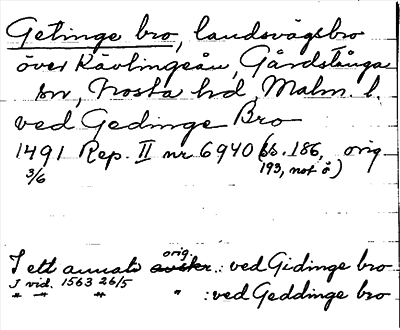 Getinge bro, landsvägsbro
över Kävlingeån, Gårdstånga
sn, Frosta hd, Malm. l.
ved Gedinge Bro
1491 Rep. II nr 6940 (ss. 186, orig
3/6 193, not å)
orig.
I ett annat avskr.: ved Gidinge bro
I vid. 1563 26/5
" " " " : ved Geddinge bro